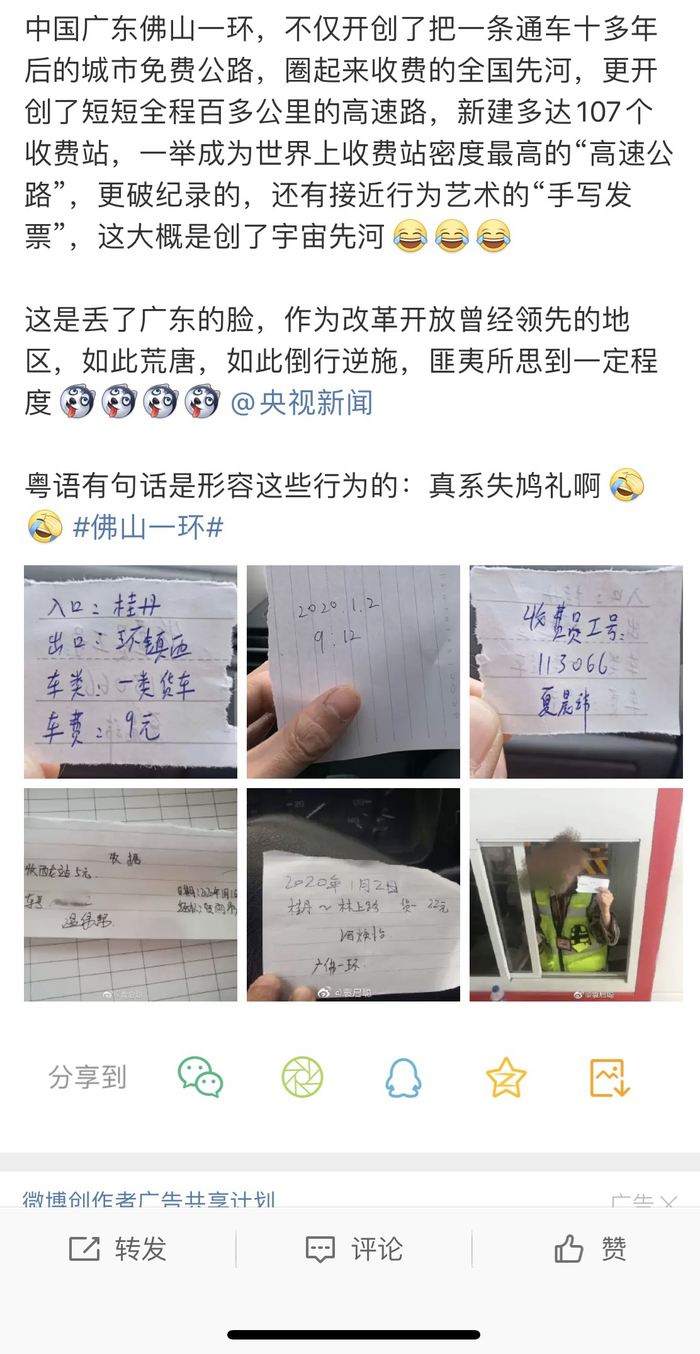 中国广东佛山一环，不仅开创了把一条通车十多年
后的城市免费公路，圈起来收费的全国先河，更开
创了短短全程百多公里的高速路，新建多达107个
收费站，一举成为世界上收费站密度最高的“高速公
路”，更破纪录的，还有接近行为艺术的“手写发
票”，这大概是创了宇宙先河😂😂😂
这是丢了广东的脸，作为改革开放曾经领先的地
区，如此荒唐，如此倒行逆施，匪夷所思到一定程
度 @央视新闻
粤语有句话是形容这些行为的：真系失鸠礼啊🤣
🤣 #佛山一环#
入口：桂丹
出口：环镇西
车类：一类货车
车费：9元
2020.1.2
9:12
收费员工号：
113066
夏晨玮
收据
站5元
2020年1月2日
桂丹～林上路 货一 22元
广佛一环
分享到
微博创作者广告共享计划
广告
转发
评论
赞